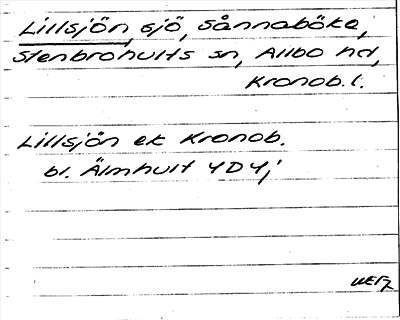 Lillsjön, sjö, Sånnaböke,
Stenbrohults sn, Allbo hd,
Kronob. l.
Lillsjön ek Kronob.
bl. Älmhult 4D4j